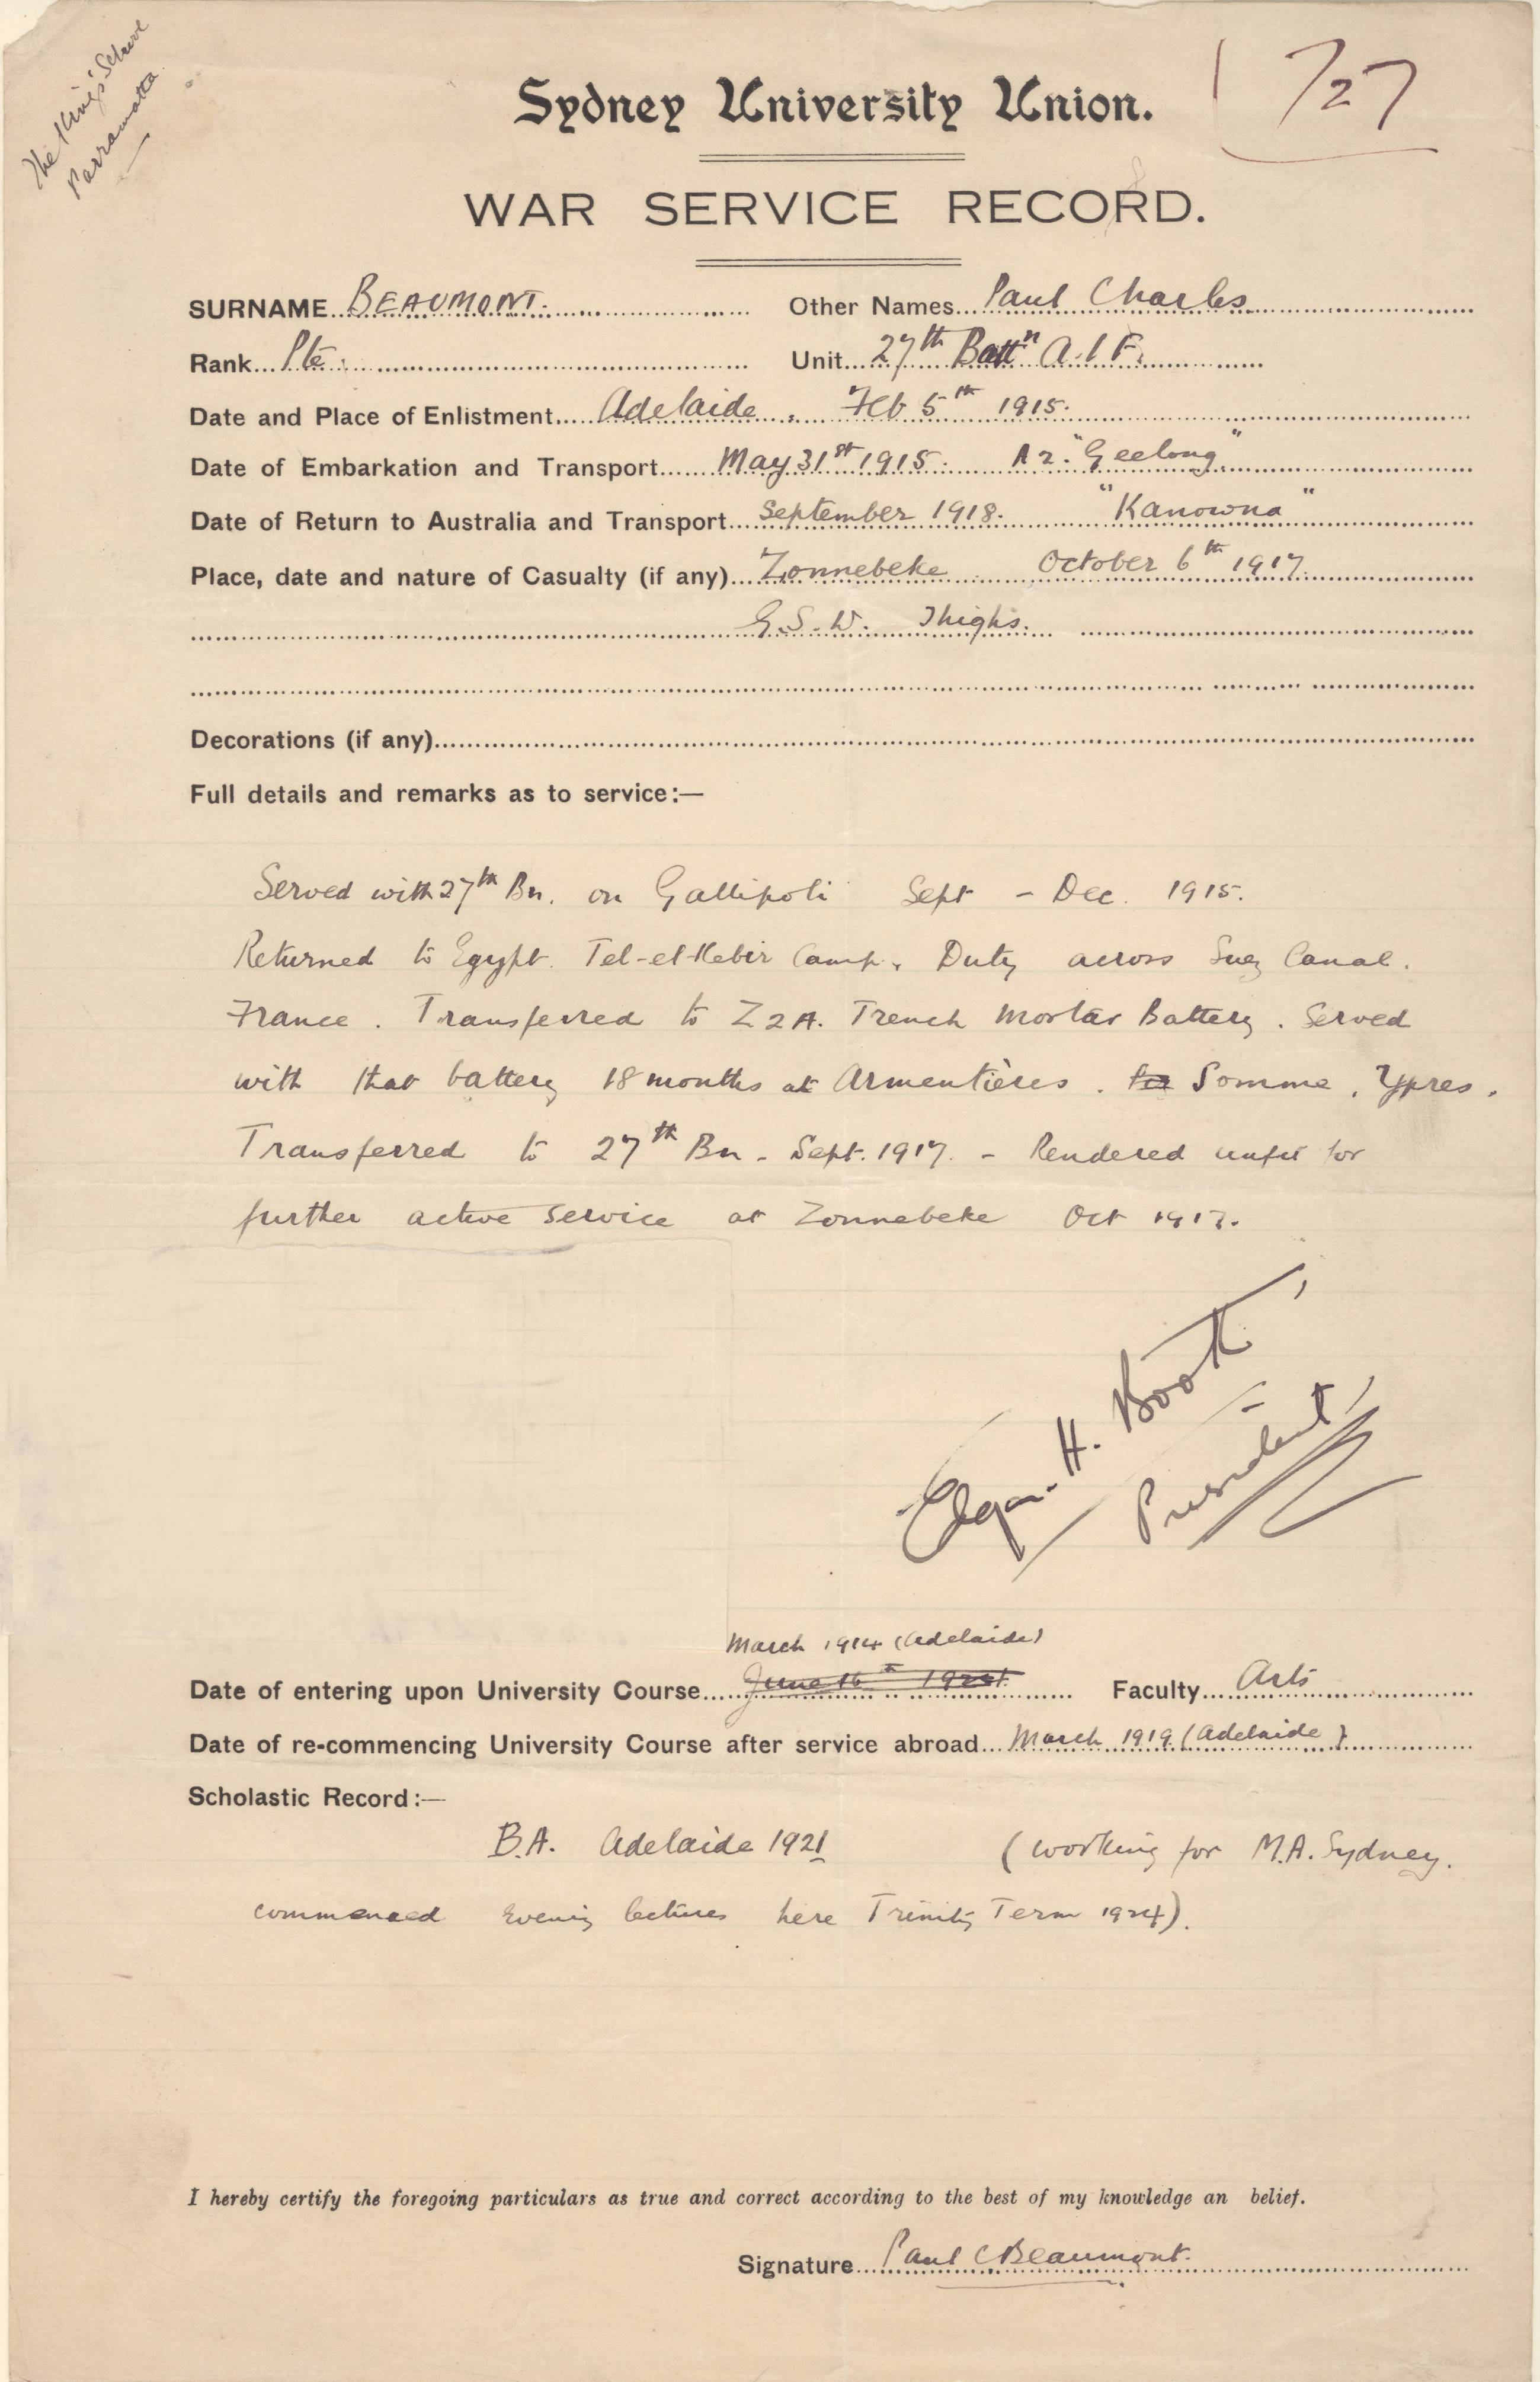 The King's School
Parramatta
1/27
Sydney University Union.
WAR SERVICE RECORD.
SURNAME BEAUMONT. Other Names Paul Charles
Rank Pte. Unit 27th Battn A.I.F.
Date and Place of Enlistment Adelaide, Feb 5th 1915.
Date of Embarkation and Transport May 31st 1915. A2. "Geelong"
Date of Return to Australia and Transport September 1918. "Kanowna"
Place, date and nature of Casualty (if any) Zonnebeke October 6th 1917.
G.S.W. Thighs.
Decorations (if any)
Full details and remarks as to service:—
Served with 27th Bn. on Gallipoli Sept - Dec. 1915.
Returned to Egypt. Tel-el-Kebir Camp, Duty across Suez Canal.
France. Transferred to Z2A. Trench Mortar Battery. Served
with that battery 18 months at Armentières. Somme, Ypres.
Transferred to 27th Bn - Sept. 1917. - Rendered unfit for
further active service at Zonnebeke Oct 1917.
Edgar H. Booth
President
March 1914 (Adelaide)
Date of entering upon University Course June 16th 1924 Faculty Arts
Date of re-commencing University Course after service abroad March 1919 (Adelaide)
Scholastic Record:—
B.A. Adelaide 1921 (working for M.A. Sydney.
commenced Evening lectures here Trinity Term 1924).
I hereby certify the foregoing particulars as true and correct according to the best of my knowledge an belief.
Signature Paul C Beaumont.